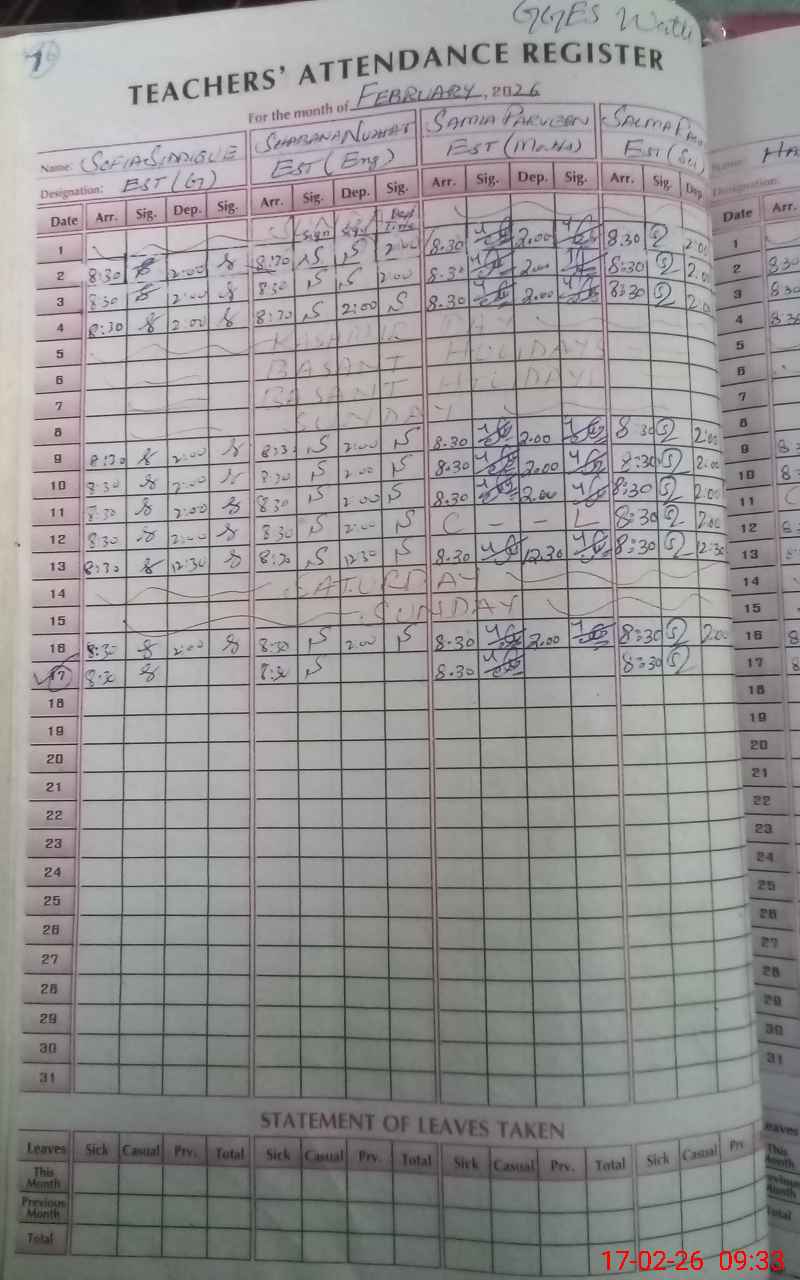 GGES
TEACHERS' ATTENDANCE REGISTER
For the month of FEBRUARY, 2026
Name: SOFIA SIDDIQUE SHABANA NUZHAT SAMIA PARVEEN SALMA Name: HA
Designation: EST (G) EST (Eng) EST (Maths) EST (Sci) Designation:
Date Arr. Sig. Dep. Sig. Arr. Sig. Dep. Sig. Arr. Sig. Dep. Sig. Arr. Sig. Dep Date Arr.
1 SUN 1
2 8:30 2:00 8:30 2:00 8.30 2.00 8.30 2:00 2 830
3 8:30 2:00 830 2:00 8.30 2.00 8:30 2.0 3 830
4 8:30 2:00 8:30 2:00 8.30 2.00 8:30 2:0 4 83
5 KASHMIR DAY 5
6 BASANT HOLIDAYS 6
7 BASANT HOLIDAYS 7
8 SUNDAY 8
9 8:30 2:00 8:30 2:00 8.30 2.00 8:30 2:00 9 8
10 8:30 2:00 8:30 2:00 8.30 2.00 8:30 2:00 10 8
11 8:30 2:00 830 2:00 8.30 2.00 8:30 2.00 11 C
12 8:30 2:00 8:30 2:00 C - - L 8:30 2.00 12 8
13 8:30 12:30 8:30 12:30 8.30 12.30 8:30 12:30 13
14 SATURDAY 14
15 SUNDAY 15
16 8:30 2:00 8:30 2:00 8.30 2.00 8:30 2.00 16 8
17 8:30 8:30 8.30 8:30 17 8
18 18
19 19
20 20
21 21
22 22
23 23
24 24
25 25
26 26
27 27
28 28
29 29
30 30
31 31
STATEMENT OF LEAVES TAKEN
Leaves Sick Casual Prv. Total Sick Casual Prv. Total Sick Casual Prv. Total Sick Casual Prv
This Month
Previous Month
Total
17-02-26 09:33